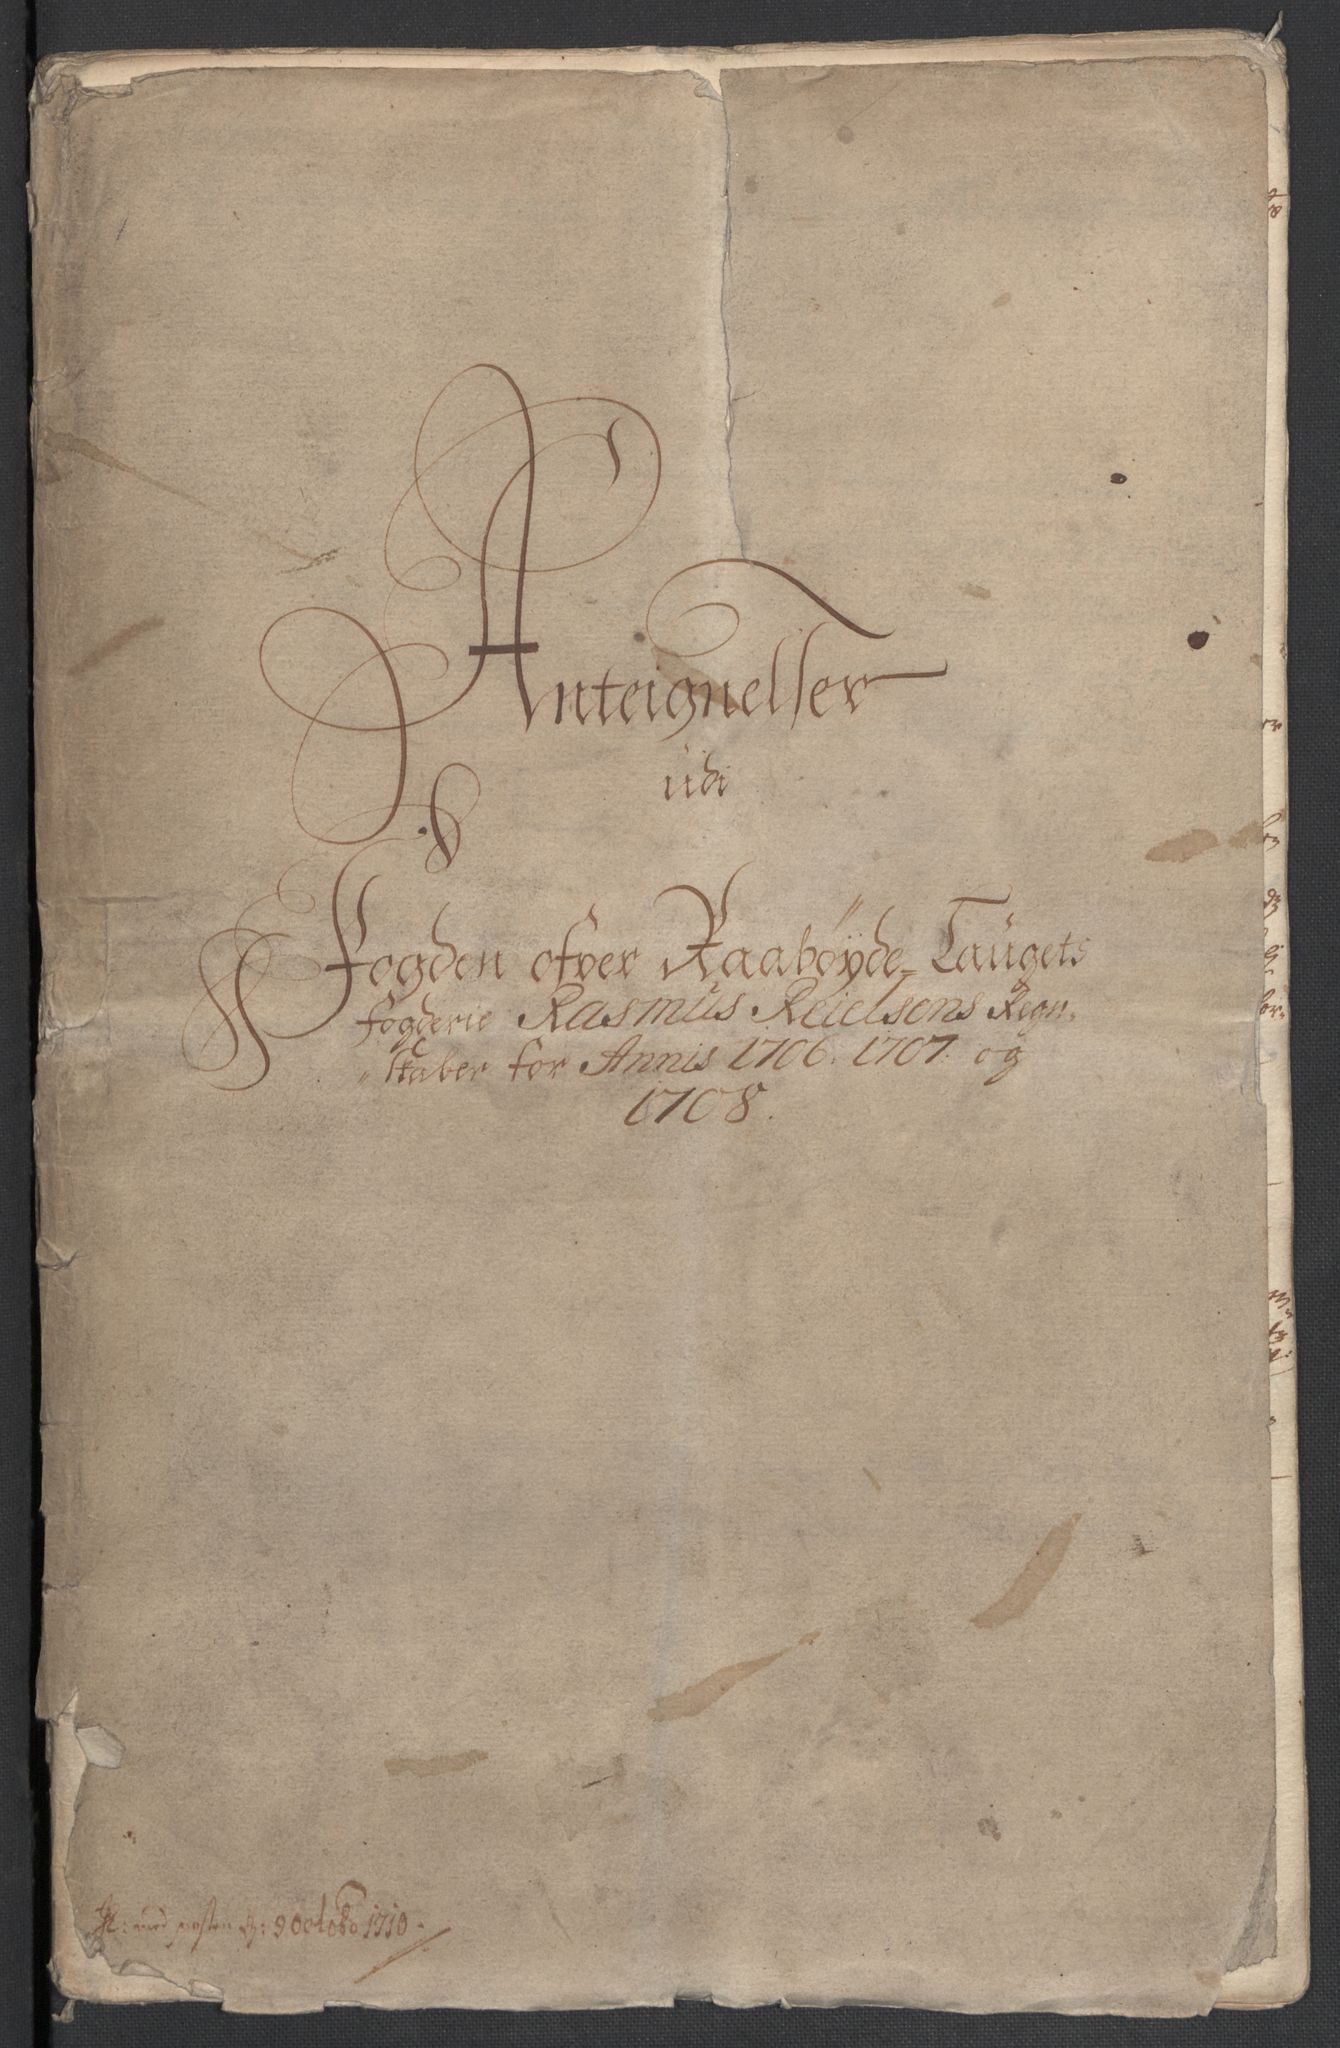 Anteignelser
udi
Fogden ofver Raabøyde-Laugets
fogderie Rasmus Reielsons Regn-
skaber for Annis 1706. 1707. og
1708.
med posten d: 9 octobr 1710.